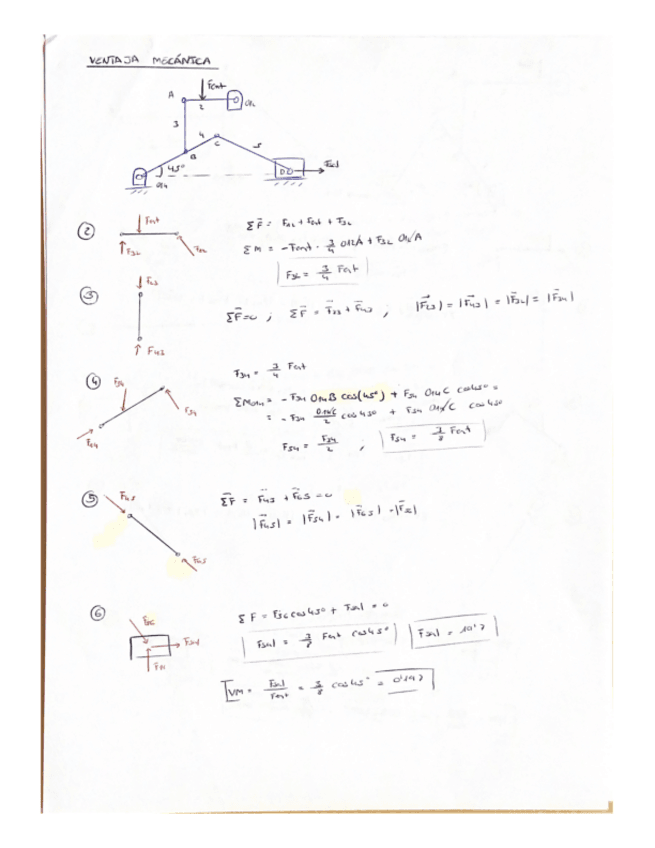 VENTAJA MECÁNICA
Fent
A
2
O12
3
4
C
5
B
45°
O14
Fsal
②
Fent
F32
F12
Σ F⃗ = F12 + Fent + F32
Σ M = -Fent · 3/4 O12A + F32 O12A
F32 = 3/4 Fent
③
F23
F43
ΣF⃗=0 ; ΣF⃗ = F⃗23 + F⃗43 ; |F⃗23| = |F⃗43| = |F⃗32| = |F⃗34|
④
F34
F54
F14
F34 = 3/4 Fent
ΣMO14 = - F34 O14B cos(45°) + F54 O14C cos45° =
= - F34 O14C/2 cos45° + F54 O14C cos45°
F54 = F34/2 ; F54 = 3/8 Fent
⑤
F45
F65
ΣF⃗ = F⃗45 + F⃗65 = 0
|F⃗45| = |F⃗54| = |F⃗65| = |F⃗56|
⑥
F56
Fsal
Σ F = F56 cos45° + Fsal = 0
Fsal = 3/8 Fent cos45°
VM = Fsal/Fent = 3/8 cos45° =